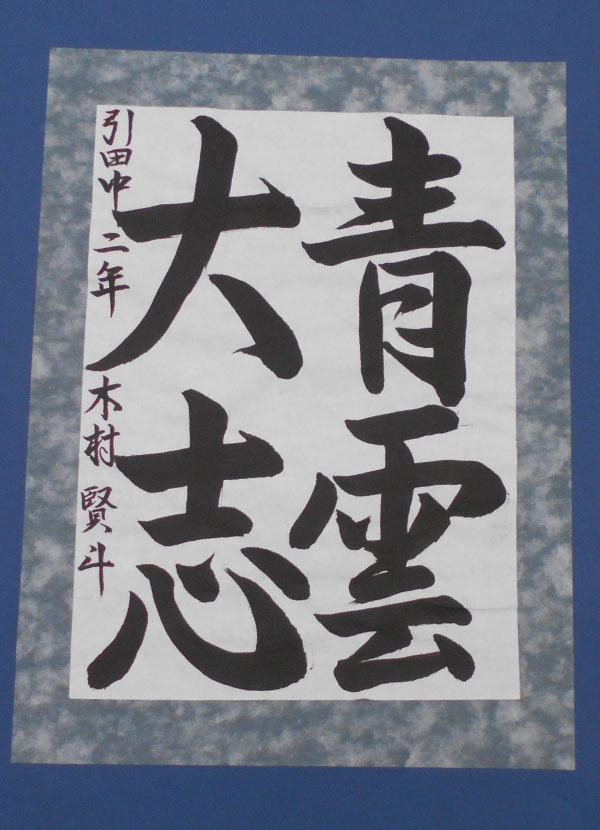 青雲
大志
引田中 二年 木村 賢斗